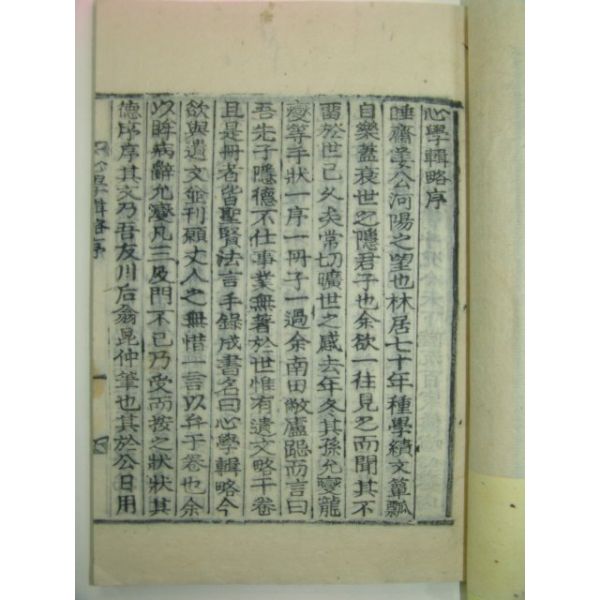 心學輯略序
睡齋姜公河陽之望也林居七十年種學績文簞瓢
自樂蓋衰世之隱君子也余欲一往見之而聞其不
留於世已久矣常切曠世之感去年冬其孫允夔龍
夔等手狀一序一冊子一過余南田敝廬跽而言曰
吾先子隱德不仕事業無著於世惟有遺文略干卷
且是冊者皆聖賢法言手錄成書名曰心學輯略今
欲與遺文並刊願丈人之無惜一言以弁于卷也余
以眸病辭允夔凡三及門不已乃受而按之狀狀其
德序序其文乃吾友川后翁昆仲筆也其於公日用
心學輯略序
一